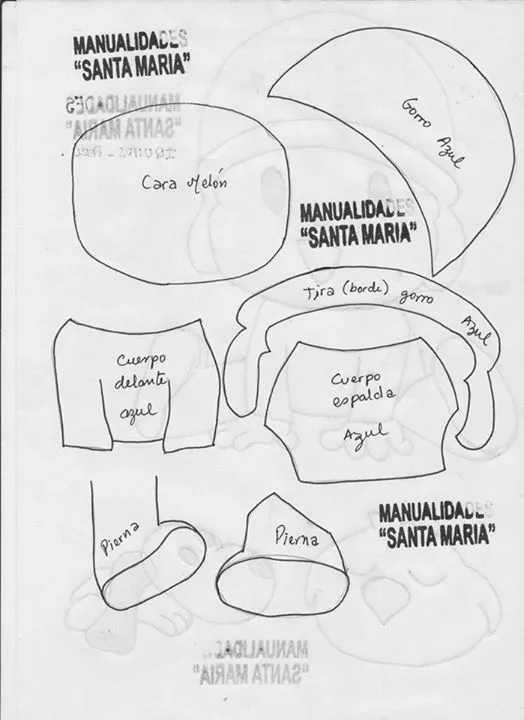 MANUALIDADES
"SANTA MARIA"
MANUALIDADES
"SANTA MARIA"
Gorro Azul
Cara Melón
MANUALIDADES
"SANTA MARIA"
Tira (borde) gorro
Azul
Cuerpo
delante
azul
Cuerpo
espalda
Azul
Pierna
Pierna
MANUALIDADES
"SANTA MARIA"
MANUALIDADES
"SANTA MARIA"